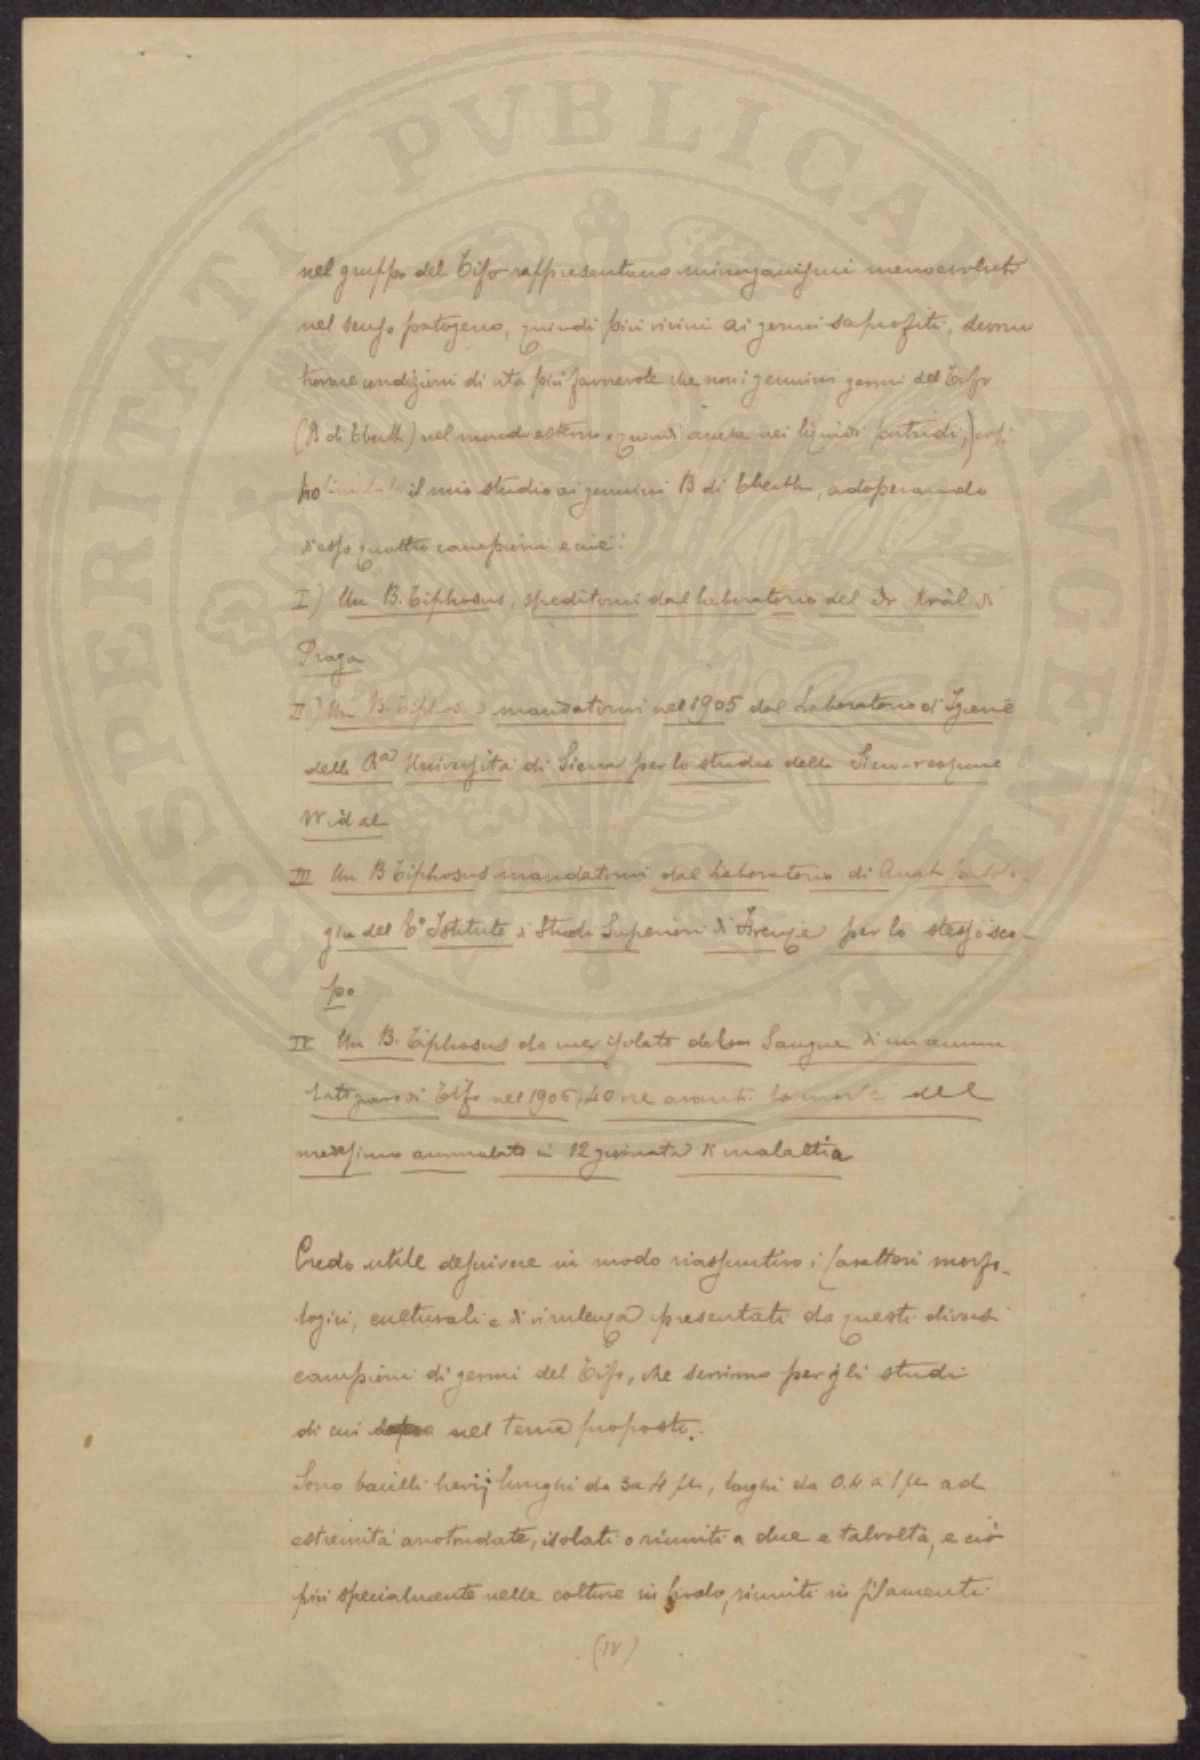 nel gruppo del Tifo rappresentano microrganismi meno evoluti
nel senso patogeno, quindi più vicini ai germi saprofiti, devono
trovare condizioni di vita più favorevole che non i genuini germi del Tifo
(B di Eberth) nel mondo esterno e quindi anche nei liquidi putridi,) così
ho limitato il mio studio ai genuini B di Eberth, adoperando
d'esso quattro campioni e cioè:
I) Un B. Tiphosus, speditomi dal laboratorio del Dr Kràl di
Praga
II) Un B. Tiphosus mandatomi nel 1905 dal Laboratorio di Igiene
della Ra Università di Siena per lo studio della Siero-reazione
Widal
III Un B Tiphosus mandatomi dal Laboratorio di Anat. patolo-
gia del Istituto di Studi Superiori di Firenze per lo stesso sco-
po
IV Un B. Tiphosus da me isolato dal Sangue di un amma
lato grave di Tifo nel 1906, 40 ore avanti la morte del
medesimo ammalato in 12 giornata di malattia
Credo utile definire in modo riassuntivo i caratteri morfo-
logici, culturali e di virulenza presentati da questi diversi
campioni di germi del Tifo, che servirono per gli studi
di cui sopra nel tema proposto.
Sono bacilli brevi, lunghi da 3 a 4 µ, larghi da 0.4 a 1 µ ad
estremità arrotondate, isolati o riuniti a due e talvolta, e ciò
più specialmente nelle colture in brodo, riuniti in filamenti
(IV)
PROSPERITATI PVBLICAE AVGENDAE